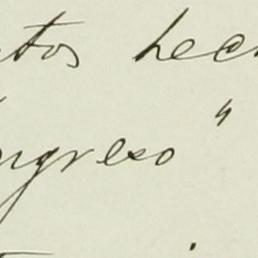 tos hec
ngreso "